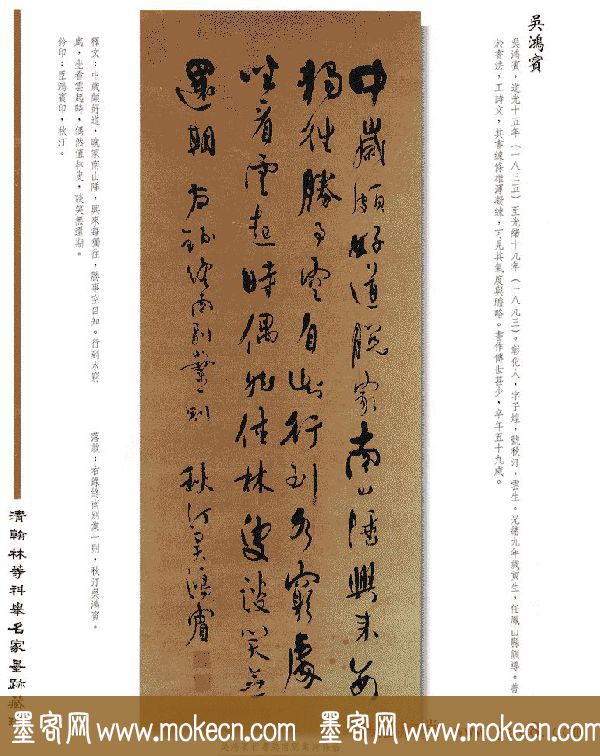 吳鴻賓
吳鴻賓，道光十五年（一八三五）至光緒十九年（一八九三）。彰化人，字子煌，號秋汀，雲生。光緒九年歲貢生，任鳳山縣訓導。善
於書法，工詩文，其書線條雄渾凝練，可見其氣度與膽略。書作傳世甚少，卒年五十九歲。
中歲頗好道脫家南山陲興來每
獨往勝事空自知行到水窮處
坐看雲起時偶然值林叟談笑無
還期 右錄 一則 秋汀吳鴻賓
釋文：中歲頗好道，晚家南山陲，興來每獨往，勝事空自知。行到水窮
處，坐看雲起時，偶然值林叟，談笑無還期。
鈐印：臣鴻賓印，秋汀。
落款：右錄 一則，秋汀吳鴻賓。
清翰林等科舉名家墨跡
墨客网 www.mokecn.com 墨客网 www.mokecn.com